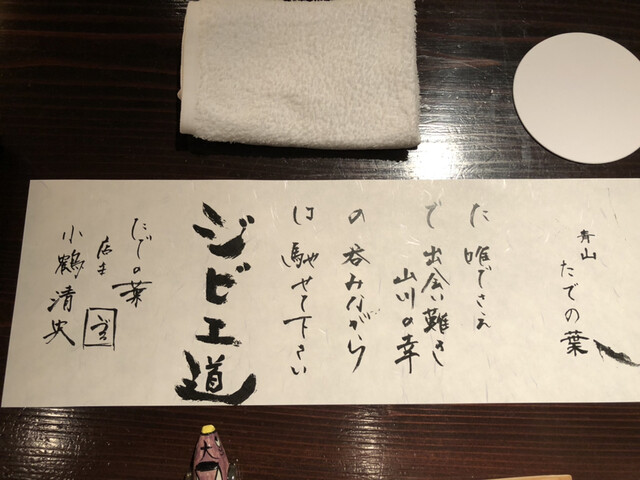 青山
たでの葉
た 唯でさえ
で 出会い難き
山川の幸
の 呑みながら
は 馳せて下さい
ジビエ道
たでの葉
店主
小鶴清史
大